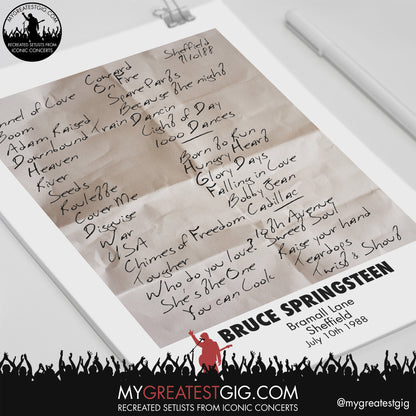 MYGREATESTGIG.COM
RECREATED SETLISTS FROM
ICONIC CONCERTS
Sheffield
nnel of Love
Boom
Adam Raised
Downbound Train
Heaven
River
Seeds
Roulette
Cover Me
Disguise
War
USA
Chimes of Freedom
Tougher
Who do you love?
She's the One
You can Look
Coward
On Fire
Spare Parts
Because the night
Dancin
Light of Day
1000 Dances
Born to Run
Hungry Heart
Glory Days
Falling in Love
Bobby Jean
Cadillac
10th Avenue
Sweet Soul
Raise your hand
Teardops
Twist & Shout
BRUCE SPRINGSTEEN
Bramall Lane
Sheffield
July 10th 1988
MYGREATESTGIG.COM
RECREATED SETLISTS FROM ICONIC CONCERTS
@mygreatestgig